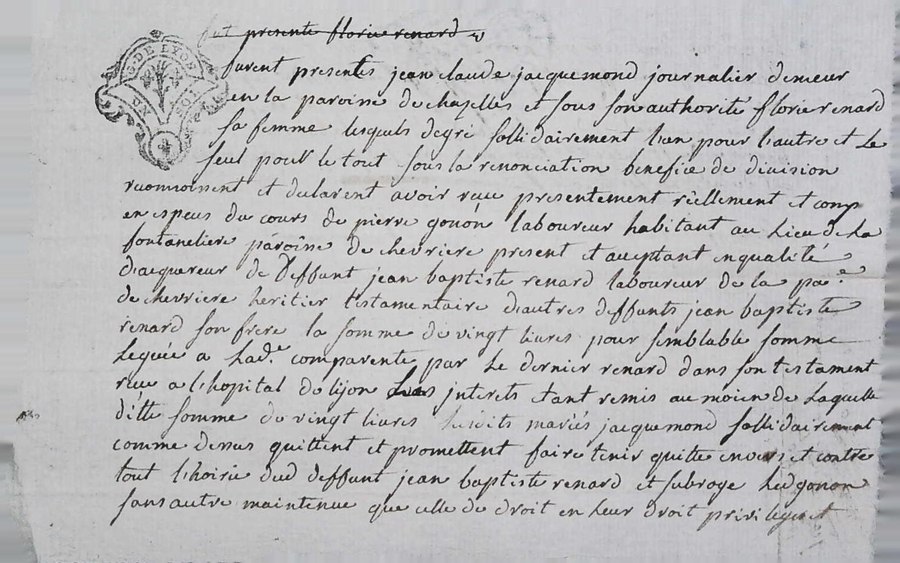 fut presente florie renard
G. DE LYON
UN SOL
furent presentés jean claude jacquemond journalier demeur
en la paroisse de chazelles et sous son authorité florie renard
sa femme lesquels de gré sollidairement l'un pour l'autre et Le
seul pour le tout sous la renonciation benefice de division
reconnoissent et declarent avoir recu presentement réellement et comp
en especes du cours de pierre gonon laboureur habitant au Lieu de La
fontaneliere paroisse de chevriere present et acceptant en qualité
d'acquereur de deffunt jean baptiste renard laboureur de la pa.e
de chevriere heritier testamentaire d'autres deffunts jean baptiste
renard son frere la somme de vingt livres pour semblable somme
Leguée a Lad.e comparente par Le dernier renard dans son testament
recu a L'hopital de lyon Les interets etant remis au moien de Laquelle
ditte somme de vingt livres Lesdits mariés jacquemond sollidairement
comme dessus quittent et promettent faire tenir quitte envers et contre
tout L'hoirie dud deffunt jean baptiste renard et subroge Led gonon
sans autre maintenue que celle de droit en Leur droit privilege et